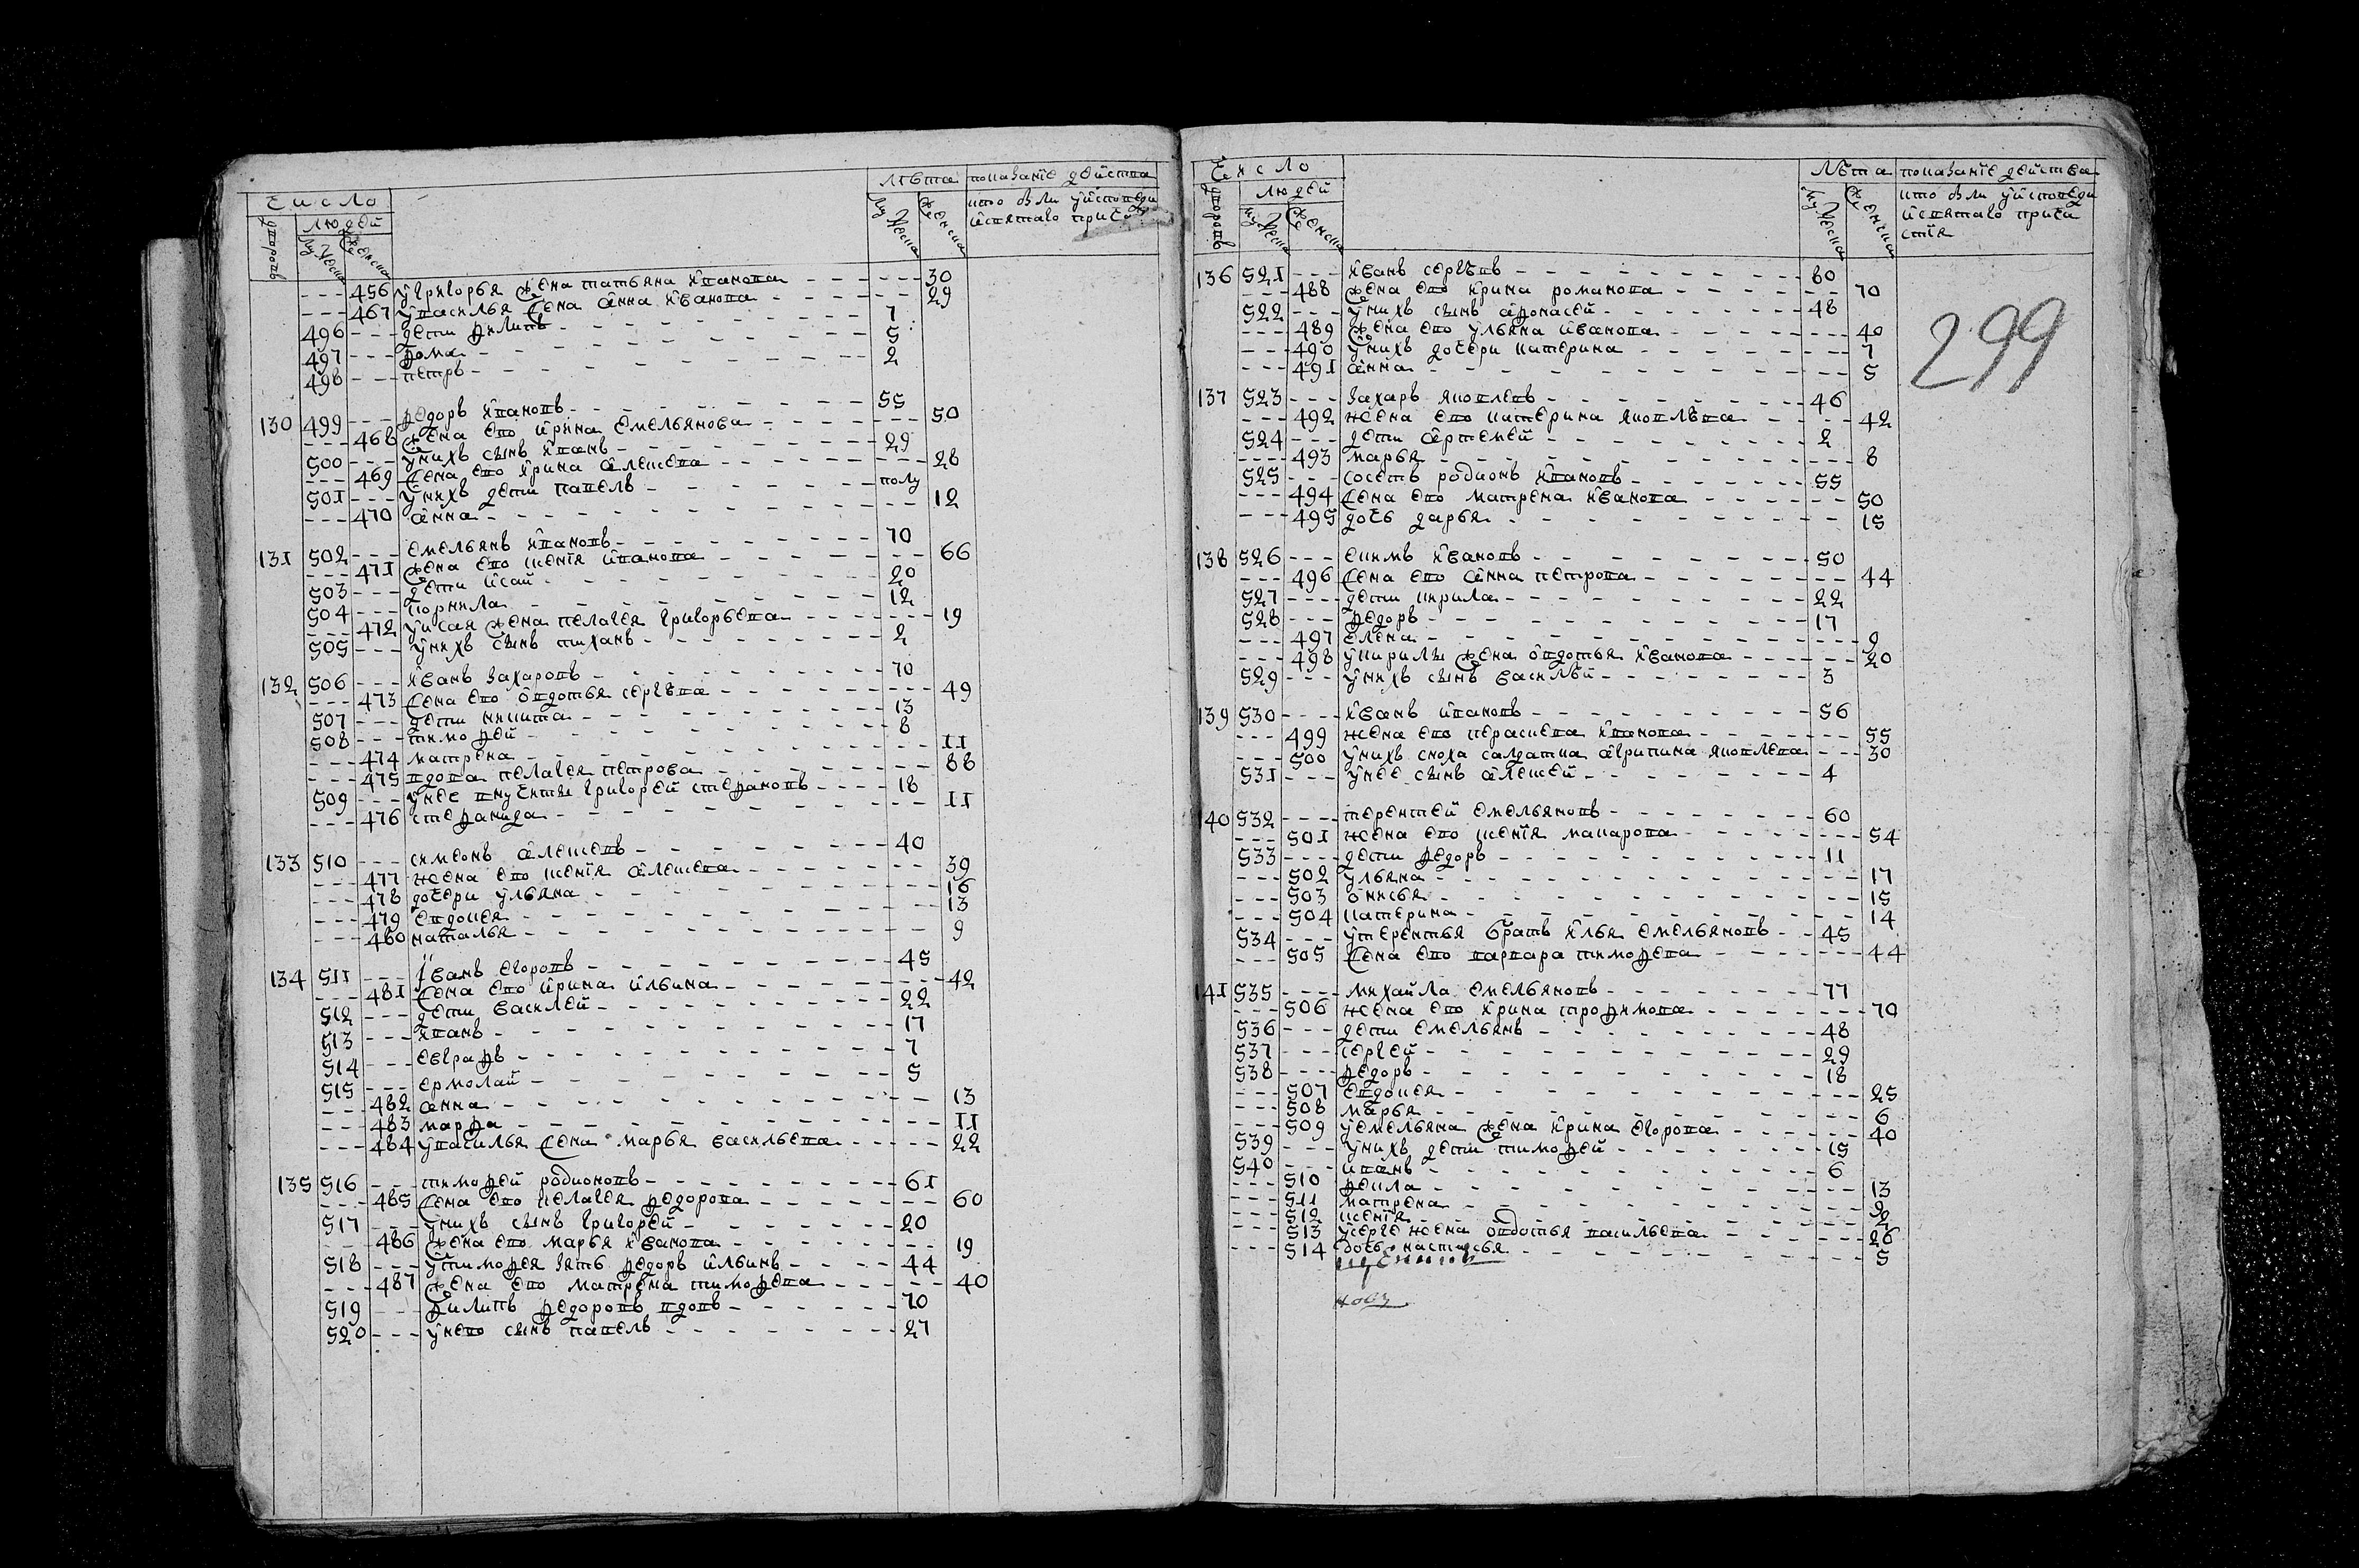 Число
лѣта показание действа
людей
кто были у исповеди
дворовъ
му жеска
женска
му жеска
женска
и святаго прича
--- 466 у григорья жена татьяна иванова --- 30
--- 467 у василья жена анна иванова --- 29
496 --- дети филипъ --- 7
497 --- фома --- 5
498 --- петръ --- 2
130 499 --- федоръ ивановъ --- 55
--- 468 жена ево ирина емельянова --- 50
500 --- у нихъ сынъ иванъ --- 29
--- 469 жена ево ирина алексева --- 28
501 --- у нихъ дети павелъ --- полу
--- 470 анна --- 12
131 502 --- емельянъ ивановъ --- 70
--- 471 жена ево ксения иванова --- 66
503 --- дети исай --- 20
504 --- корнила --- 12
--- 472 у исая жена пелагея григорьева --- 19
505 --- у нихъ сынъ тиханъ --- 2
132 506 --- иванъ захаровъ --- 70
--- 473 жена ево овдотья сергѣва --- 49
507 --- дети никита --- 13
508 --- тимофей --- 8
--- 474 матрена --- 11
--- 475 вдова пелагея петрова --- 88
509 --- у нее внучаты григорей стефановъ --- 18
--- 476 стефанида --- 11
133 510 --- симеонъ алексевъ --- 40
--- 477 жена ево ксения алексева --- 39
--- 478 дочери ульяна --- 16
--- 479 евдокея --- 13
--- 480 наталья --- 9
134 511 --- иванъ егоровъ --- 45
--- 481 жена ево ирина ильина --- 42
512 --- дети василей --- 22
513 --- иванъ --- 17
514 --- евграфъ --- 7
515 --- ермолай --- 5
--- 482 анна --- 13
--- 483 марфа --- 11
--- 484 у василья жена марья васильева --- 22
135 516 --- тимофей родионовъ --- 61
--- 485 жена ево пелагея федорова --- 60
517 --- у нихъ сынъ григорей --- 20
--- 486 жена ево марья иванова --- 19
518 --- у тимофея зять федоръ ильинъ --- 44
--- 487 жена ево матрена тимофева --- 40
519 --- филипъ федоровъ вдовъ --- 70
520 --- у нево сынъ павелъ --- 27
Число
лѣта показание действа
людей
кто были у исповеди
дворовъ
му жеска
женска
му жеска
женска
и святаго прича
стия
136 521 --- иванъ сергѣвъ --- 80
--- 488 жена ево ирина романова --- 70
522 --- у нихъ сынъ афонасей --- 48
--- 489 жена ево ульяна иванова --- 40
--- 490 у нихъ дочери катерина --- 7
--- 491 анна --- 5
299
137 523 --- захаръ яковлевъ --- 46
--- 492 жена ево катерина яковлѣва --- 42
524 --- дети артемей --- 2
--- 493 марья --- 8
525 --- соседъ родионъ ивановъ --- 55
--- 494 жена ево матрена иванова --- 50
--- 495 дочь дарья --- 15
138 526 --- екимъ ивановъ --- 50
--- 496 жена ево анна петрова --- 44
527 --- дети кирила --- 22
528 --- федоръ --- 17
--- 497 елена --- 9
--- 498 у кирилы жена овдотья иванова --- 20
529 --- у нихъ сынъ василѣй --- 3
139 530 --- иванъ ивановъ --- 56
--- 499 жена ево пераскева иванова --- 55
--- 500 у нихъ сноха салдатка агрипина яковлева --- 30
531 --- у нее сынъ алексей --- 4
140 532 --- терентей емельяновъ --- 60
--- 501 жена ево ксения макарова --- 54
533 --- дети федоръ --- 11
--- 502 ульяна --- 17
--- 503 онисья --- 15
--- 504 катерина --- 14
534 --- у терентья братъ илья емельяновъ --- 45
--- 505 жена ево варвара тимофева --- 44
141 535 --- михайла емельяновъ --- 77
--- 506 жена ево ирина трофимова --- 70
536 --- дети емельянъ --- 48
537 --- сергей --- 29
538 --- федоръ --- 18
--- 507 евдокея --- 25
--- 508 марья --- 6
--- 509 у емельяна жена ирина егорова --- 40
539 --- у нихъ дети тимофей --- 15
540 --- иванъ --- 6
--- 510 фекла --- 13
--- 511 матрена --- 9
--- 512 ксения --- 2
--- 513 у серге жена овдотья васильева --- 26
--- 514 дочь настасья --- 5